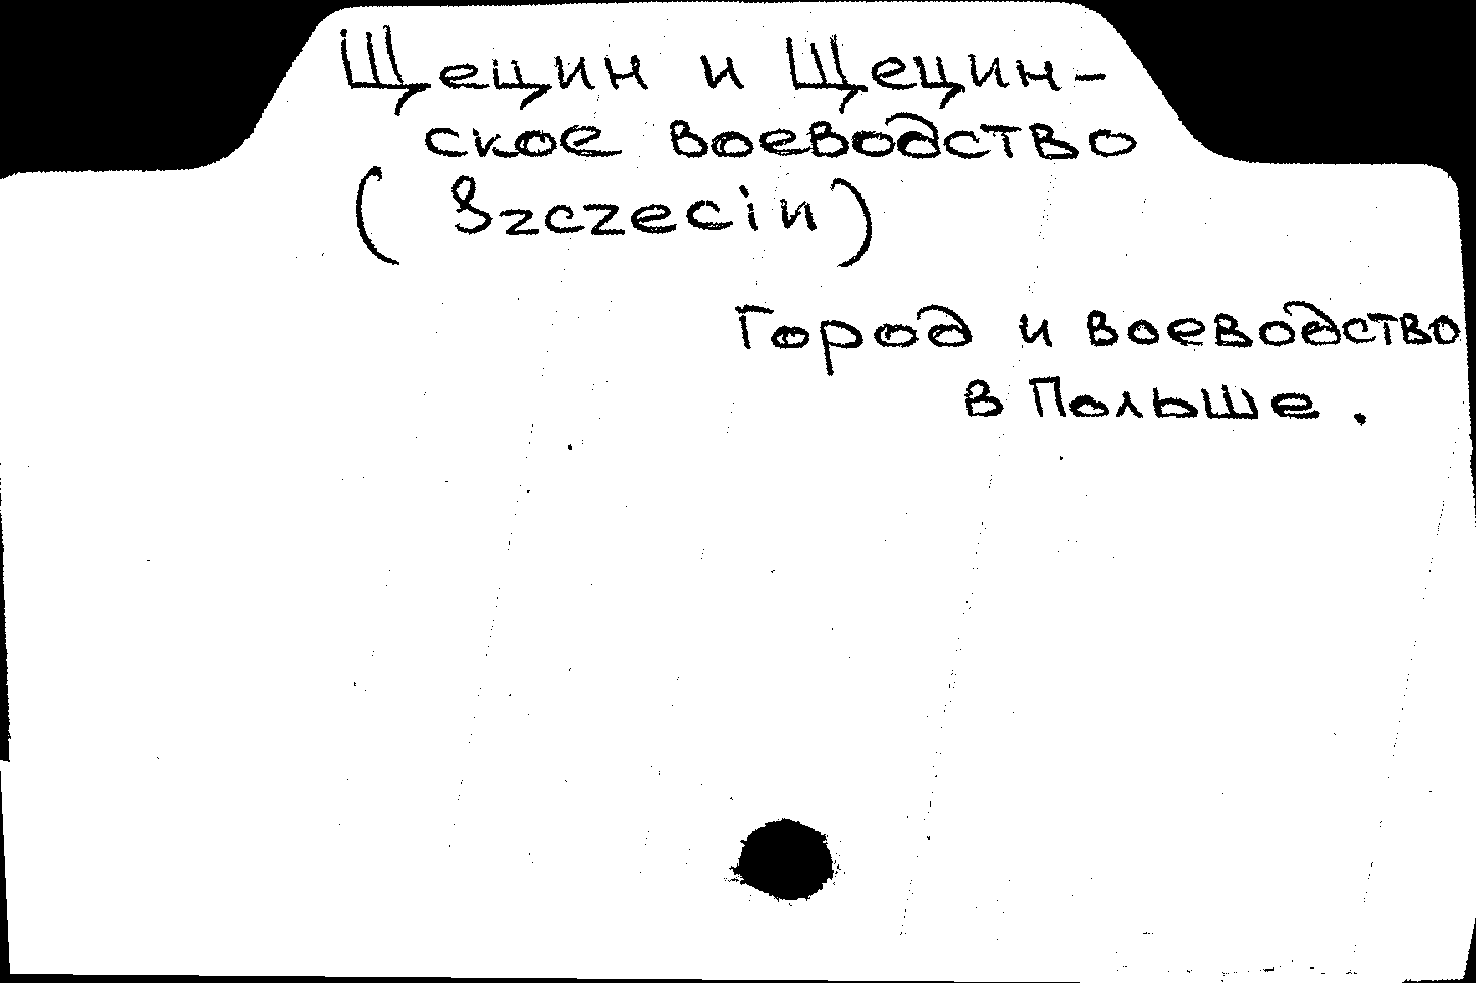 Щецин и Щецин-
ское воеводство
(Szczecin)
Город и воеводство
в Польше.